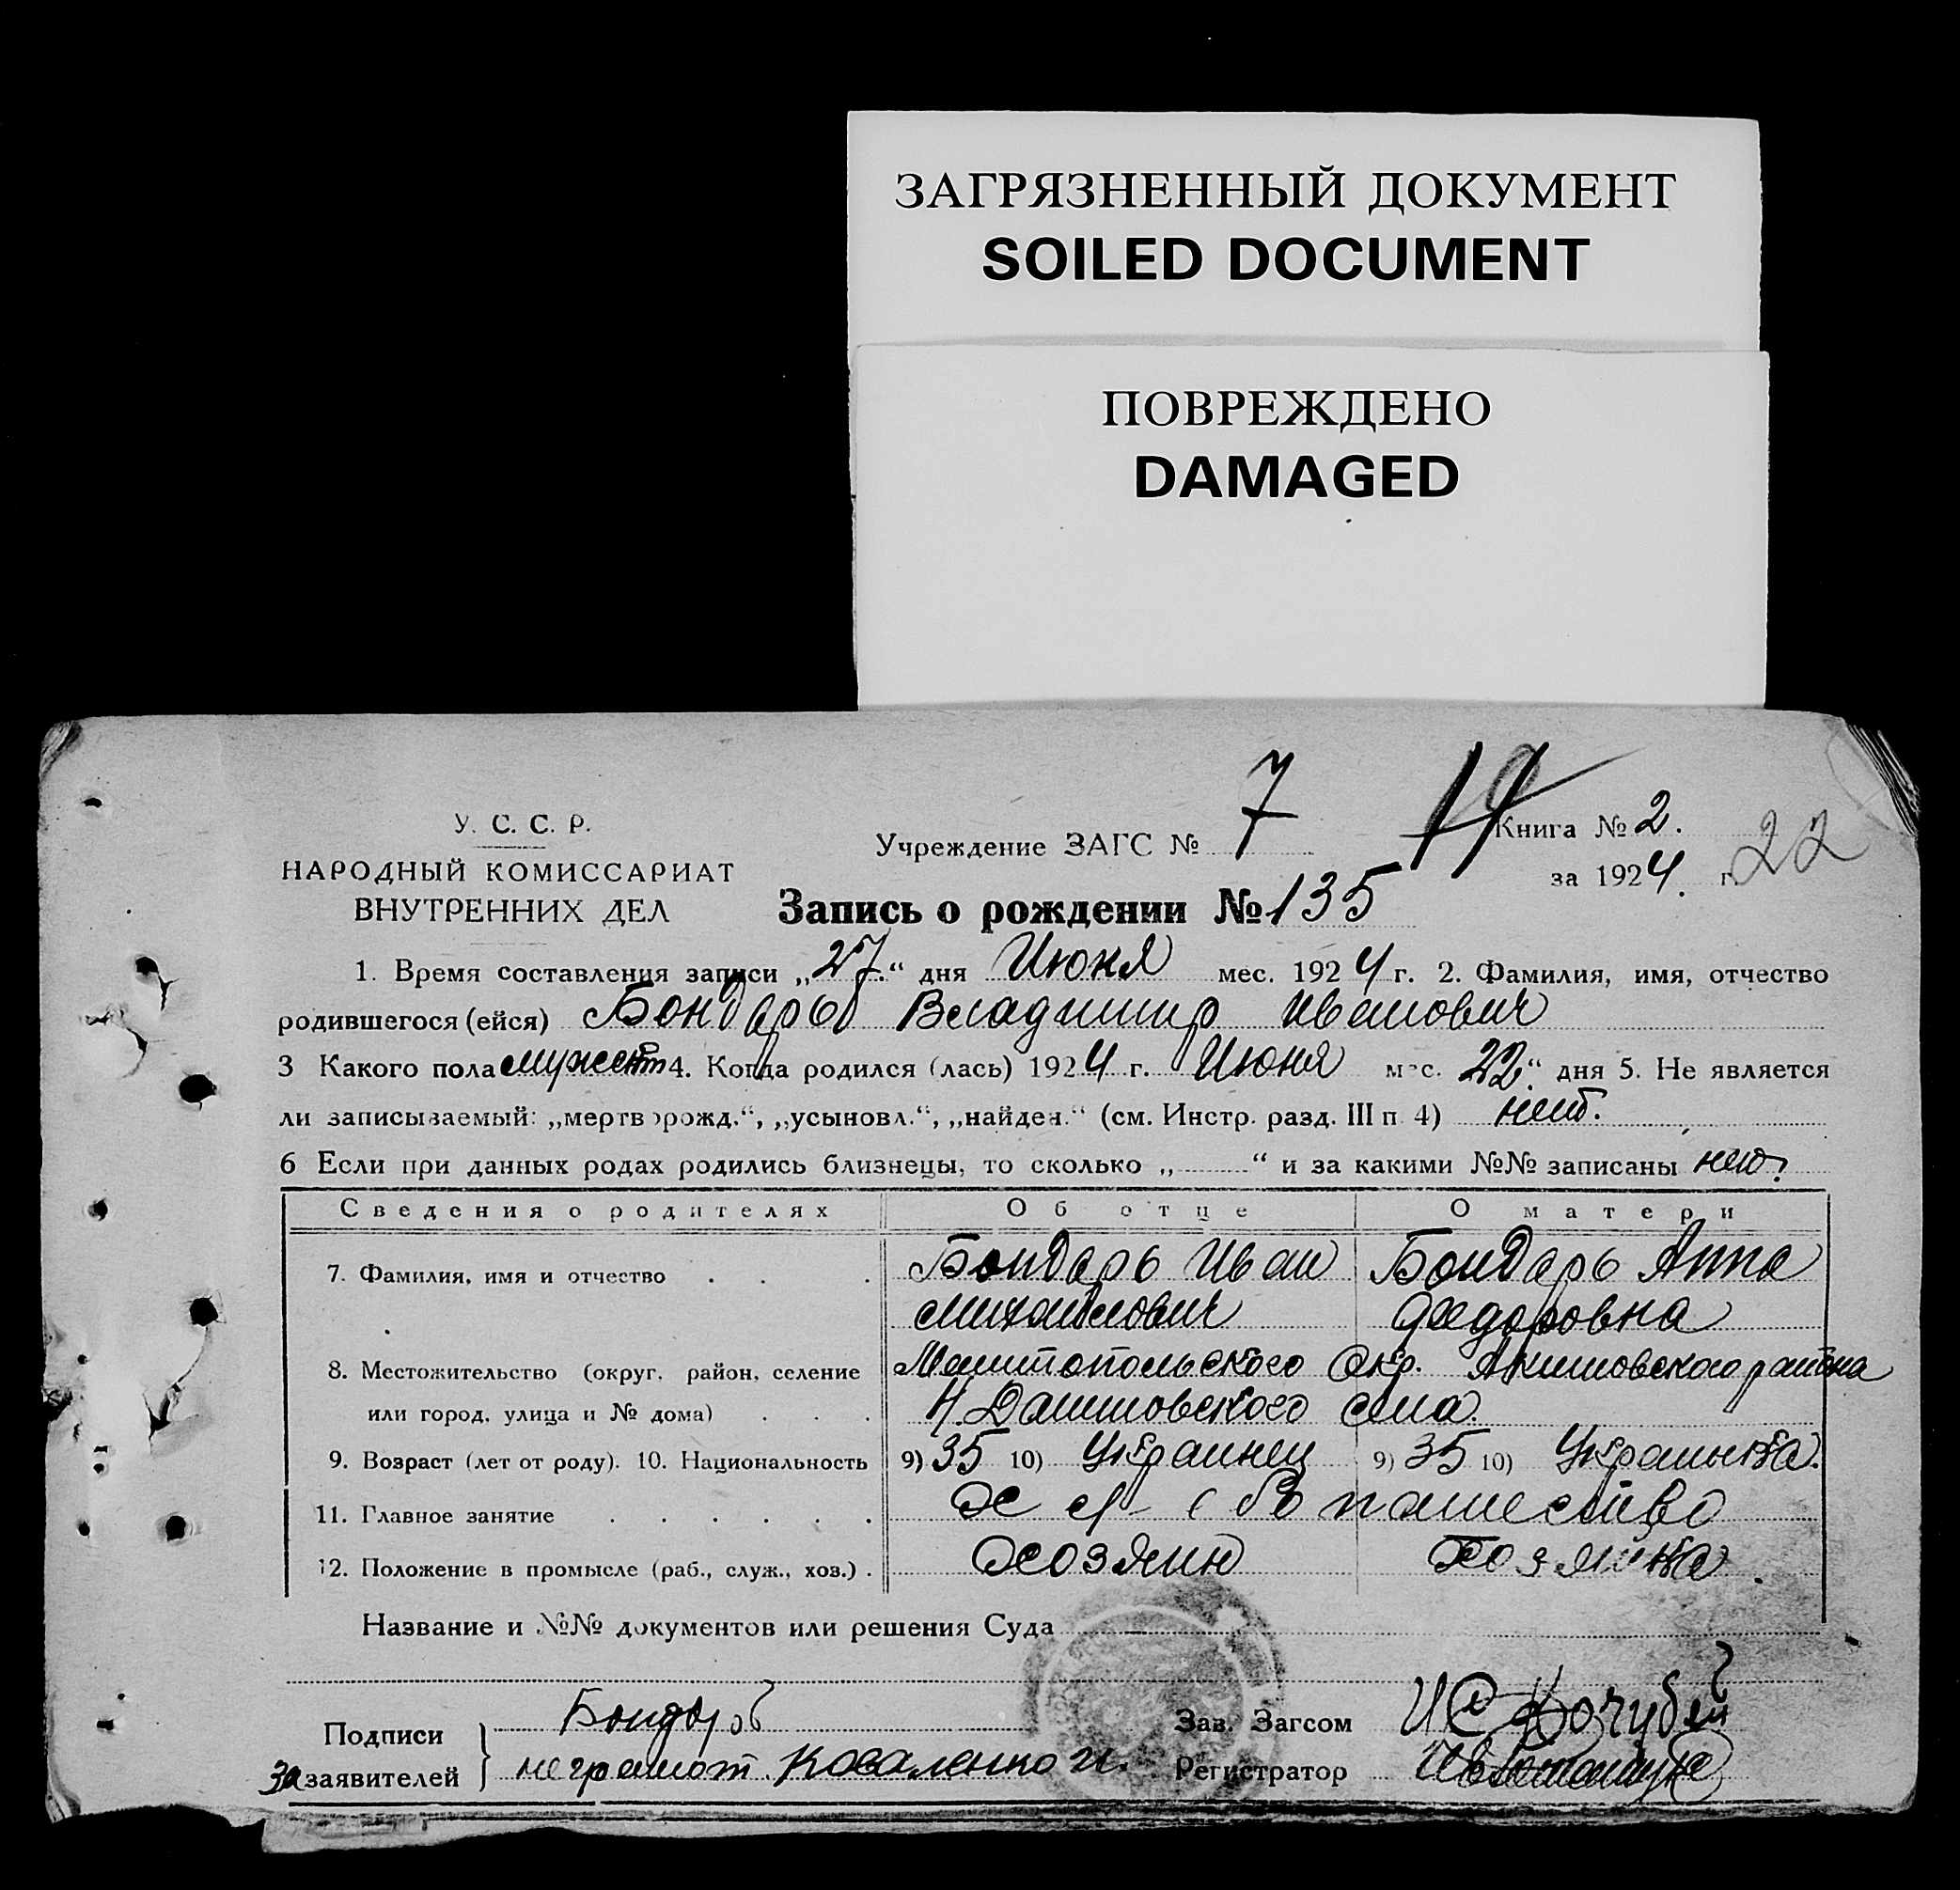 ЗАГРЯЗНЕННЫЙ ДОКУМЕНТ
SOILED DOCUMENT
ПОВРЕЖДЕНО
DAMAGED
У. С. С. Р.
НАРОДНЫЙ КОМИССАРИАТ
ВНУТРЕННИХ ДЕЛ
Учреждение ЗАГС № 7
Книга № 2.
за 1924. г. 22
Запись о рождении № 135
1. Время составления записи „27“ дня Июня мес. 1924 г. 2. Фамилия, имя, отчество
родившегося (ейся) Бондарь Владимир Иванович
3 Какого пола мужск 4. Когда родился (лась) 1924 г. Июня мес. 22“ дня 5. Не является
ли записываемый: „мертворожд.“, „усыновл.“, „найден.“ (см. Инстр. разд. III п. 4) нет.
6 Если при данных родах родились близнецы, то сколько „ “ и за какими №№ записаны нет.
Сведения о родителях Об отце О матери
7. Фамилия, имя и отчество Бондарь Иван Бондарь Анна
Михайлович Федоровна
8. Местожительство (округ, район, селение Мелитопольского Окр. Акимовского района
или город, улица и № дома) села
9. Возраст (лет от роду). 10. Национальность 9) 35 10) Украинец 9) 35 10) Украинка.
11. Главное занятие хлебопашество
12. Положение в промысле (раб., служ., хоз.) Хозяин Хозяйка
Название и №№ документов или решения Суда
Подписи Бондарь Зав. Загсом И С Кочубей
За заявителей неграмот. Коваленко И. Регистратор